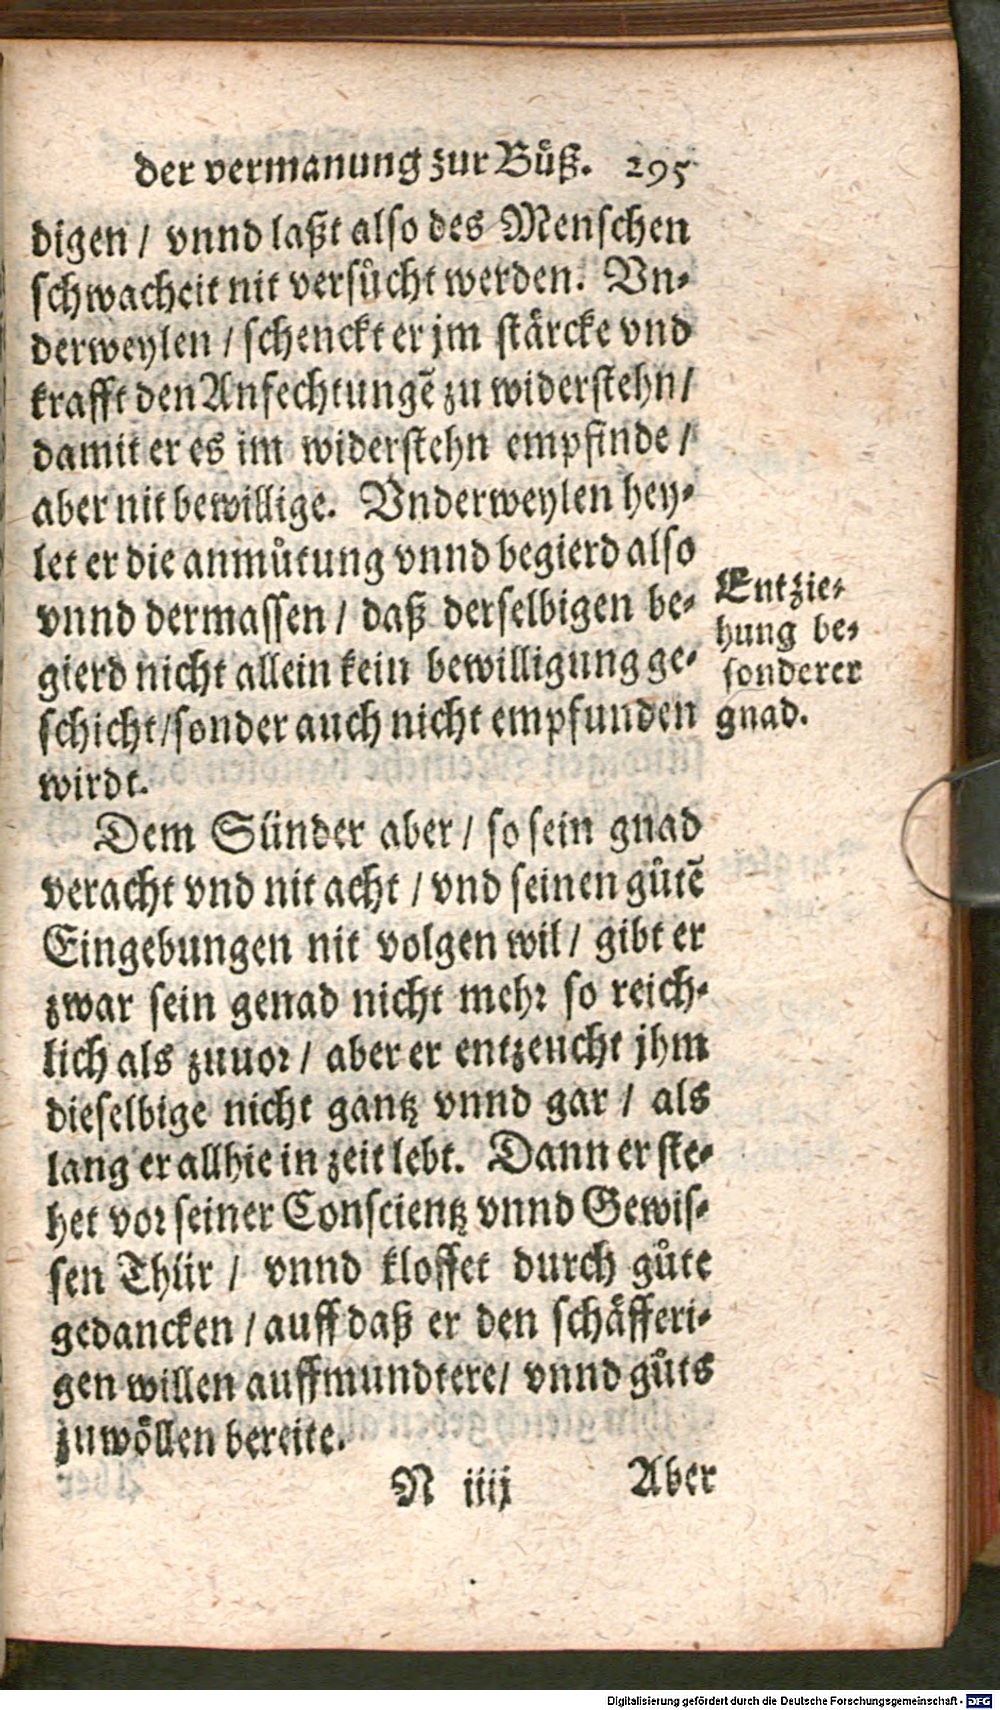 der vermanung zur Buͤß. 295
digen / vnnd laßt also des Menschen
schwacheit nit versuͦcht werden. Vn-
derweylen / schenckt er jm staͤrcke vnd
krafft den Anfechtungẽ zu widerstehn /
damit er es im widerstehn empfinde /
aber nit bewillige. Vnderweylen hey-
let er die anmuͦtung vnnd begierd also
vnnd dermassen / daß derselbigen be-
gierd nicht allein kein bewilligung ge-
schicht / sonder auch nicht empfunden
wirdt.
Entzie-
hung be-
sonderer
gnad.
Dem Sünder aber / so sein gnad
veracht vnd nit acht / vnd seinen guͦtẽ
Eingebungen nit volgen wil / gibt er
zwar sein genad nicht mehr so reich-
lich als zuuor / aber er entzeucht jhm
dieselbige nicht gantz vnnd gar / als
lang er allhie in zeit lebt. Dann er ste-
het vor seiner Conscientz vnnd Gewis-
sen Thür / vnnd kloffet durch guͦte
gedancken / auff daß er den schaͤfferi-
gen willen auffmundtere / vnnd guͦts
zuwoͤllen bereite.
N iiij Aber
Digitalisierung gefördert durch die Deutsche Forschungsgemeinschaft - DFG